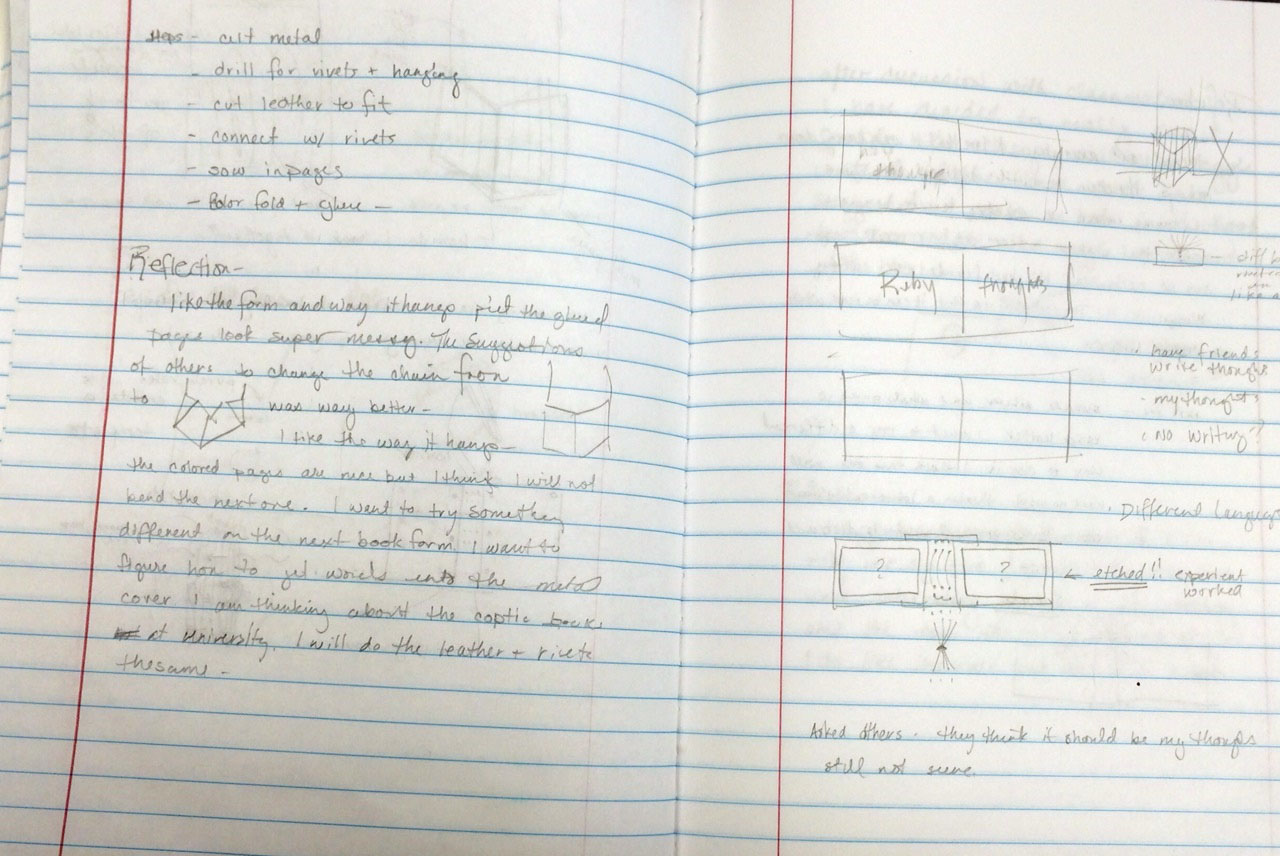 steps - cut metal
- drill for rivets + hanging
- cut leather to fit
- connect w/ rivets
- sow in pages
- fold + glue -
Reflection -
I like the form and way it hangs but the glued
pages look super messy. The suggestions
of others to change the chain from
to was way better -
I like the way it hangs -
the colored pages are nice but I think I will not
bend the next one. I want to try something
different on the next book form I want to
figure how to get words into the metal
cover I am thinking about the coptic book
at university. I will do the leather + rivets
the same -
Ruby thoughts
diff
like
· have friends
write thoughts
- my thoughts
· No writing?
· Different Language
? ? ← etched!! experiment
worked
Asked others - they think it should be my thoughts
still not sure.